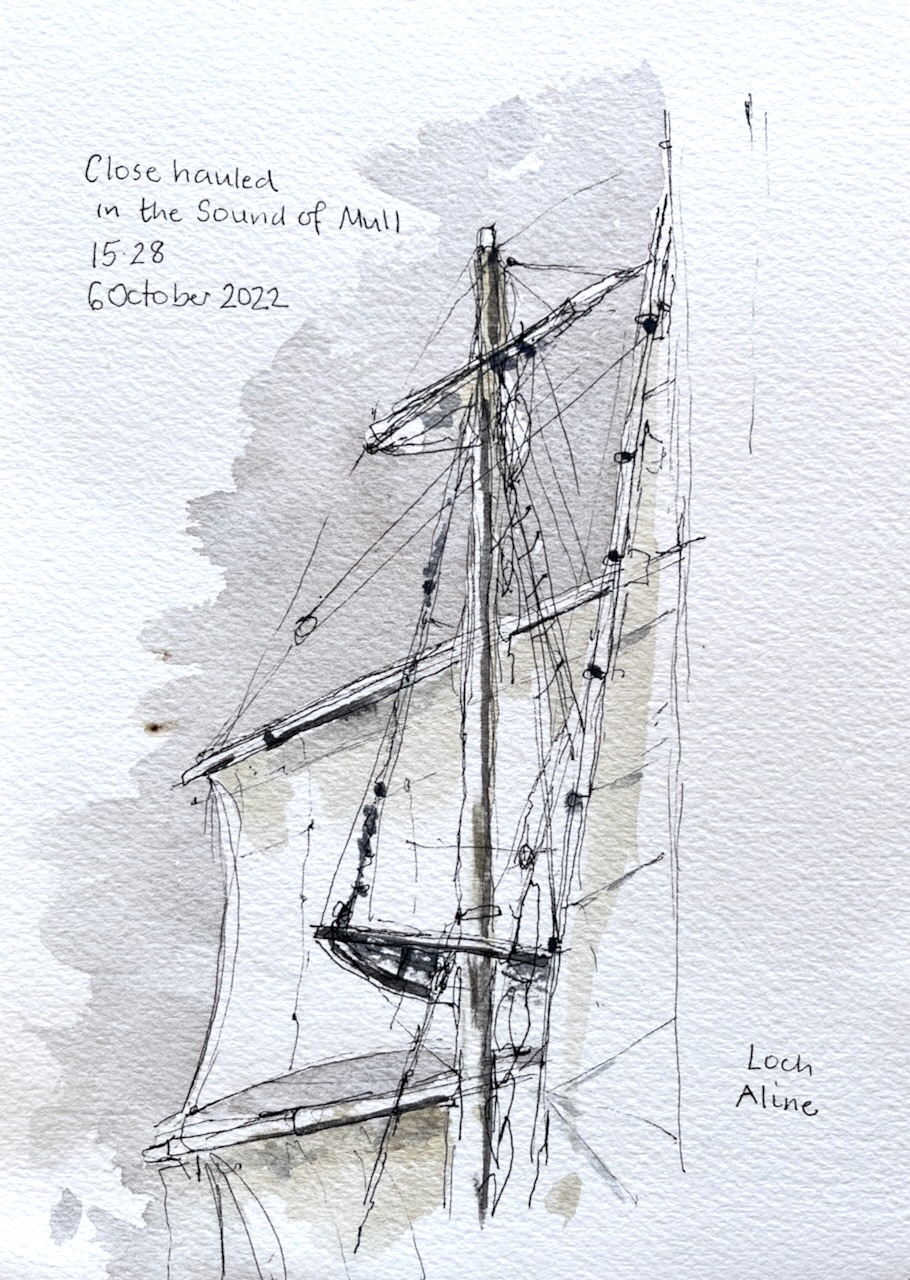 Close hauled
in the Sound of Mull
15·28
6 October 2022
Loch
Aline